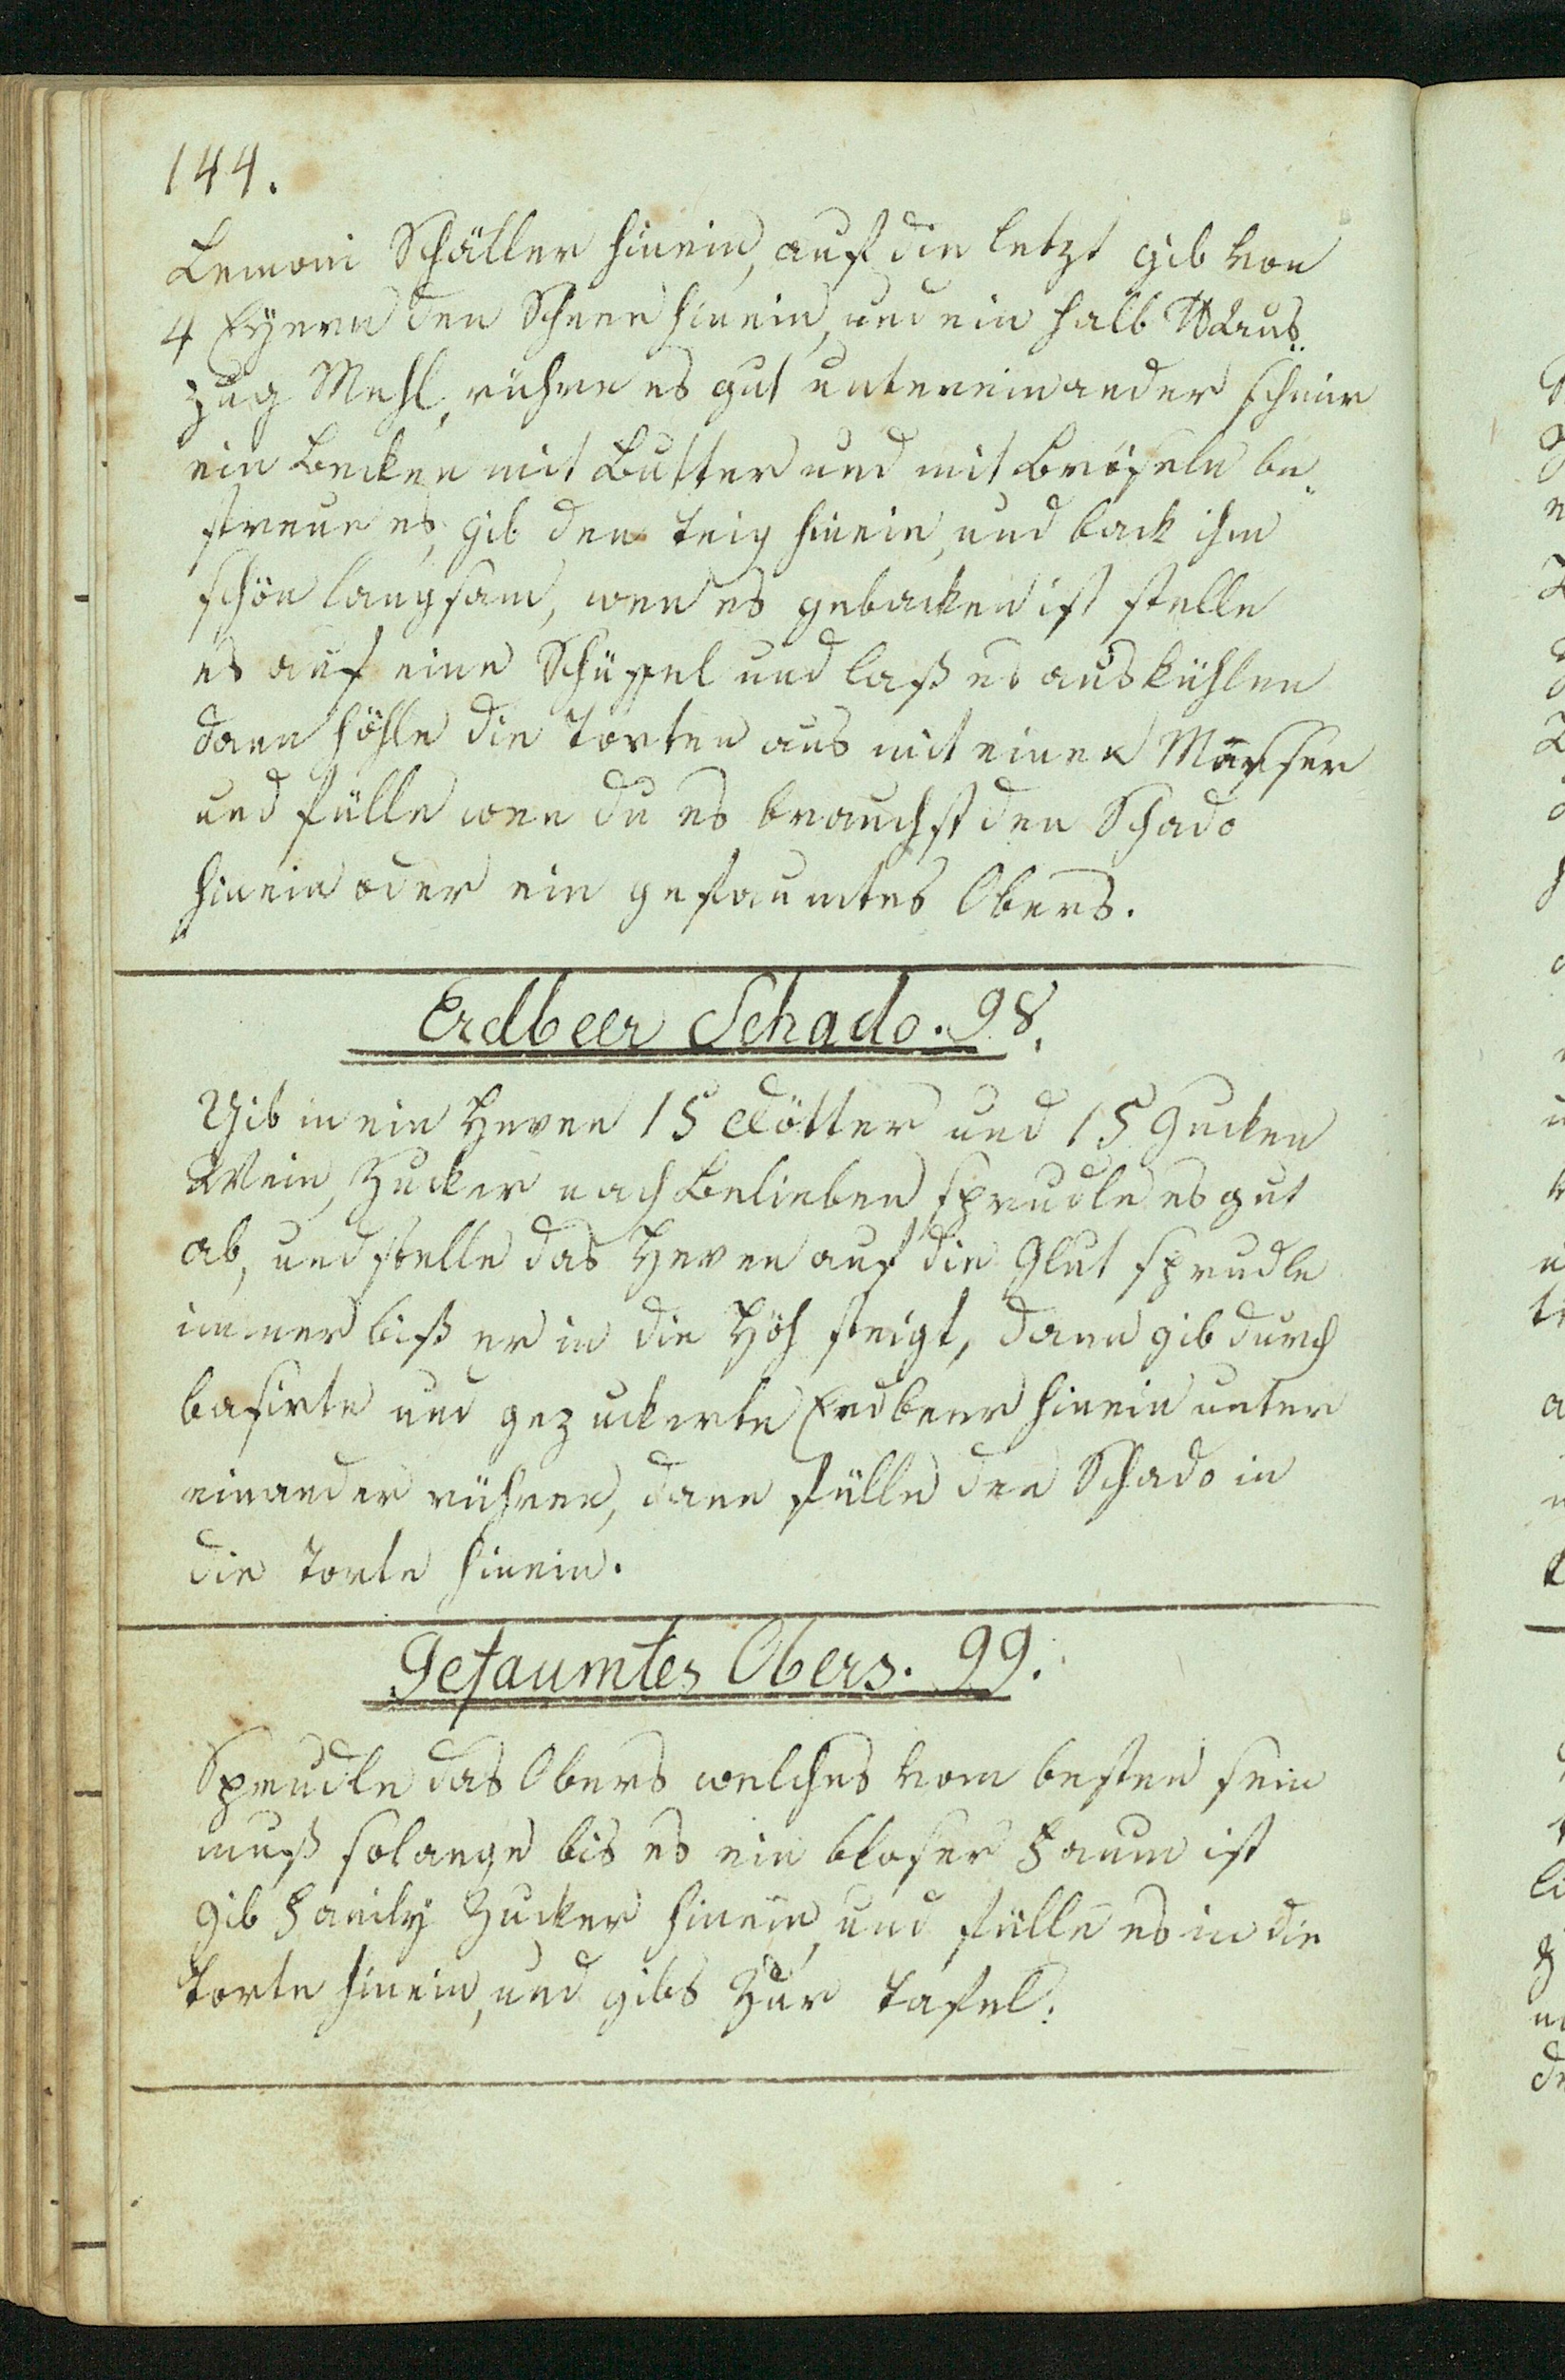 144.
Lemoni Schäller hinein, auf die letzt gib von
4 Eyern den Schnee hinein, und ein halb ℔ Aus„
zug Mehl, rühre es gut untereinander schmir
ein Becken mit Butter und mit Bröseln be„
streue es, gib den Teig hinein, und back ihm
schön langsam, wen es gebacken ist stelle
es auf eine Schüssel und laß es auskühlen
dann höhle die Torten aus mit einen Messer
und fülle wen du es brauchst den Schado
hinein oder ein gefaumtes Obers.
Erdbeer Schado. 98.
Gib in ein Heven 15 Dötter und 15 Gucken
Wein, Zucker nach Belieben, sprudle es gut
ab, und stelle das Heven auf die Glut sprudle
immer biß er in die Höh steigt, dann gib durch
basirte und gezuckerte Erdbeer hinein unter
einander rühren, dann fülle den Schado in
die Torte hinein.
Gefaumtes Obers. 99.
Sprudle das Obers welches vom besten sein
muß solange bis es ein bloser Faum ist
gib Fanily Zucker hinein, und fülle es in die
Torte hinein, und gibs Zur Tafel.